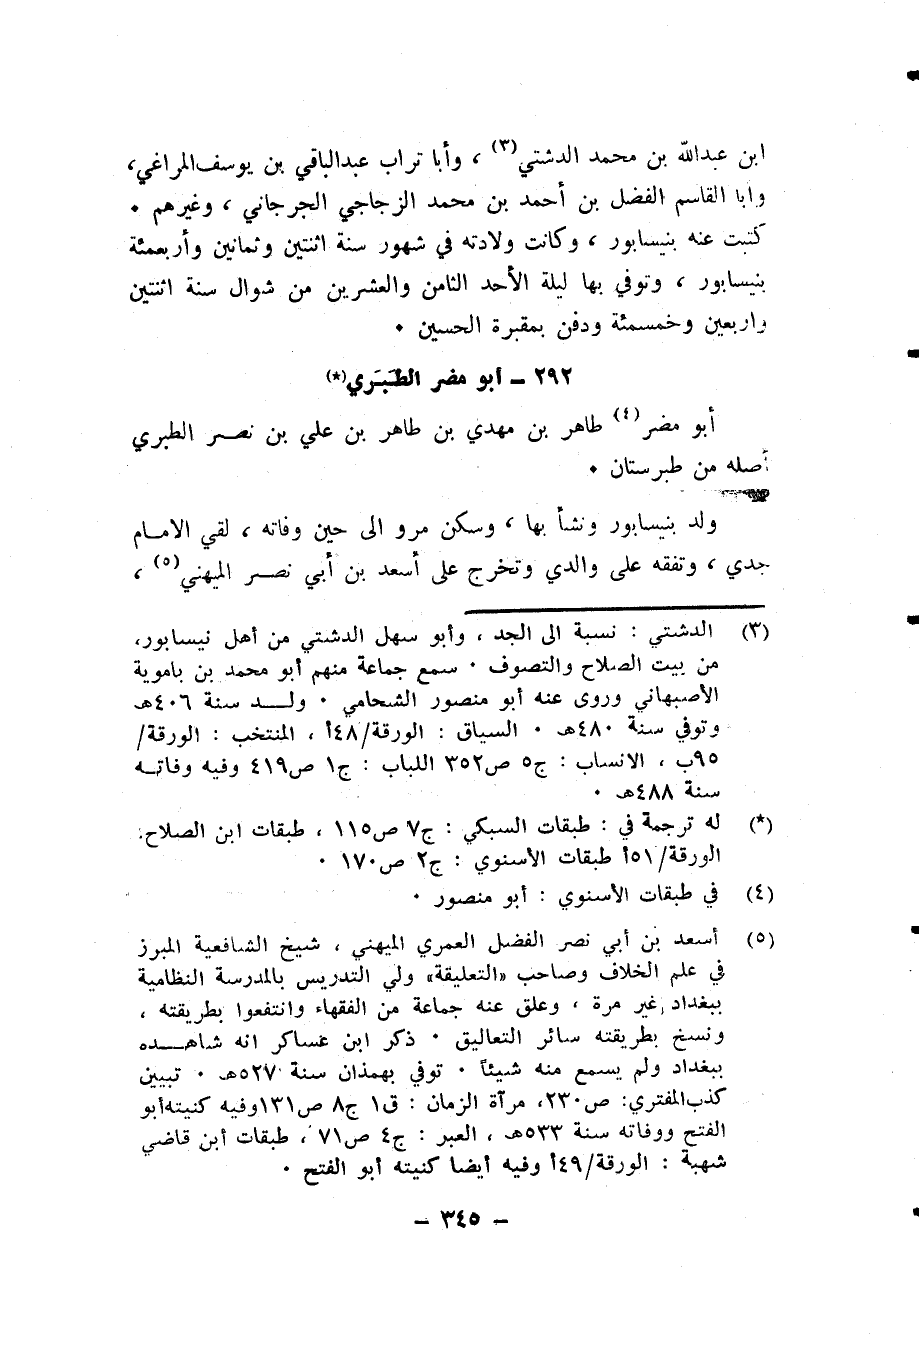 ابن عبدالله بن محمد الدشتي(٣) ، وأبا تراب عبدالباقي بن يوسف المراغي،
وأبا القاسم الفضل بن أحمد بن محمد الزجاجي الجرجاني ، وغيرهم •
كتبت عنه بنيسابور ، وكانت ولادته في شهور سنة اثنتين وثمانين وأربعمئة
بنيسابور ، وتوفي بها ليلة الأحد الثامن والعشرين من شوال سنة اثنتين
واربعين وخمسمئة ودفن بمقبرة الحسين •
٢٩٢ – أبو مضر الطَبَري(*)
أبو مضر(٤) طاهر بن مهدي بن طاهر بن علي بن نصر الطبري
أصله من طبرستان •
ولد بنيسابور ونشأ بها ، وسكن مرو الى حين وفاته ، لقي الامام
جدي ، وتفقه على والدي وتخرج على أسعد بن أبي نصر الميهني(٥) ،
(٣) الدشتي : نسبة الى الجد ، وأبو سهل الدشتي من أهل نيسابور،
من بيت الصلاح والتصوف • سمع جماعة منهم أبو محمد بن باموية
الأصبهاني وروى عنه أبو منصور الشحامي • ولد سنة ٤٠٦هـ
وتوفي سنة ٤٨٠هـ • السياق : الورقة/٤٨أ ، المنتخب : الورقة/
٩٥ب ، الانساب : ج٥ ص٣٥٢ اللباب : ج١ ص٤١٩ وفيه وفاته
سنة ٤٨٨هـ •
(*) له ترجمة في : طبقات السبكي : ج٧ ص١١٥ ، طبقات ابن الصلاح:
الورقة/٥١أ طبقات الأسنوي : ج٢ ص١٧٠ •
(٤) في طبقات الأسنوي : أبو منصور •
(٥) أسعد بن أبي نصر الفضل العمري الميهني ، شيخ الشافعية المبرز
في علم الخلاف وصاحب «التعليقة» ولي التدريس بالمدرسة النظامية
ببغداد غير مرة ، وعلق عنه جماعة من الفقهاء وانتفعوا بطريقته ،
ونسخ بطريقته سائر التعاليق • ذكر ابن عساكر انه شاهده
ببغداد ولم يسمع منه شيئاً • توفي بهمذان سنة ٥٢٧هـ • تبيين
كذب المفتري: ص٢٣٠، مرآة الزمان : ق١ ج٨ ص١٣١وفيه كنيته أبو
الفتح ووفاته سنة ٥٣٣هـ ، العبر : ج٤ ص٧١ ، طبقات أبن قاضي
شهبة : الورقة/٤٩أ وفيه أيضا كنيته أبو الفتح •
– ٣٤٥ –